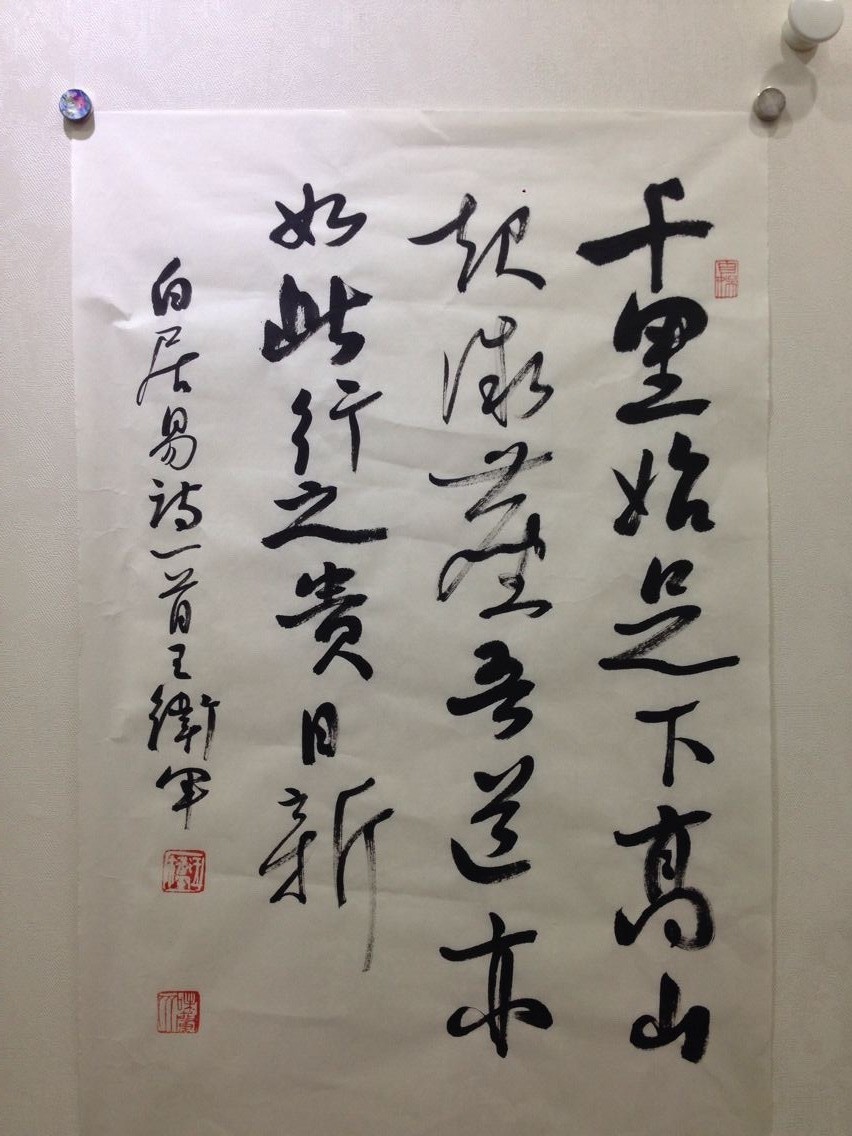 千里始足下高山
起微塵吾道亦
如此行之貴日新
白居易詩一首王衛軍